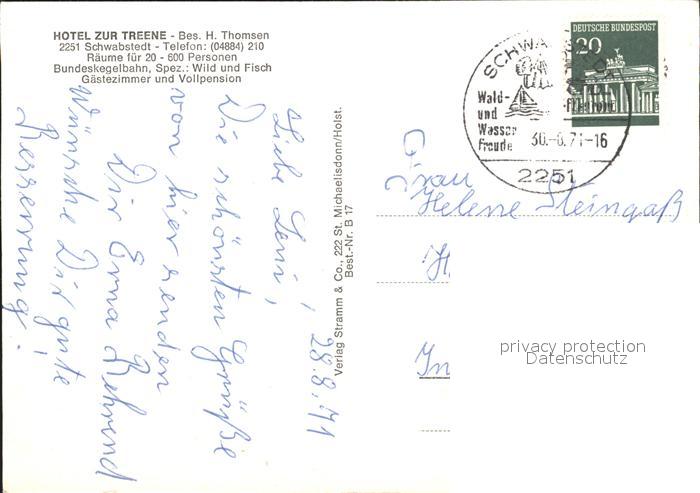 HOTEL ZUR TREENE - Bes. H. Thomsen
2251 Schwabstedt - Telefon: (04884) 210
Räume für 20 - 600 Personen
Bundeskegelbahn, Spez.: Wild und Fisch
Gästezimmer und Vollpension
28.8.71
Liebe Leni,
Die schönsten Grüße
von hier senden
Dir Erna Behrend
Wünsche Dir gute
Besserung.
Verlag Stramm & Co., 222 St. Michaelisdonn/Holst.
Best.-Nr. B 17
DEUTSCHE BUNDESPOST
20
Wald-
und
Wasser
Freude
30.-8.71-16
2251
Frau
Helene Steingaß
H
In
privacy protection
Datenschutz